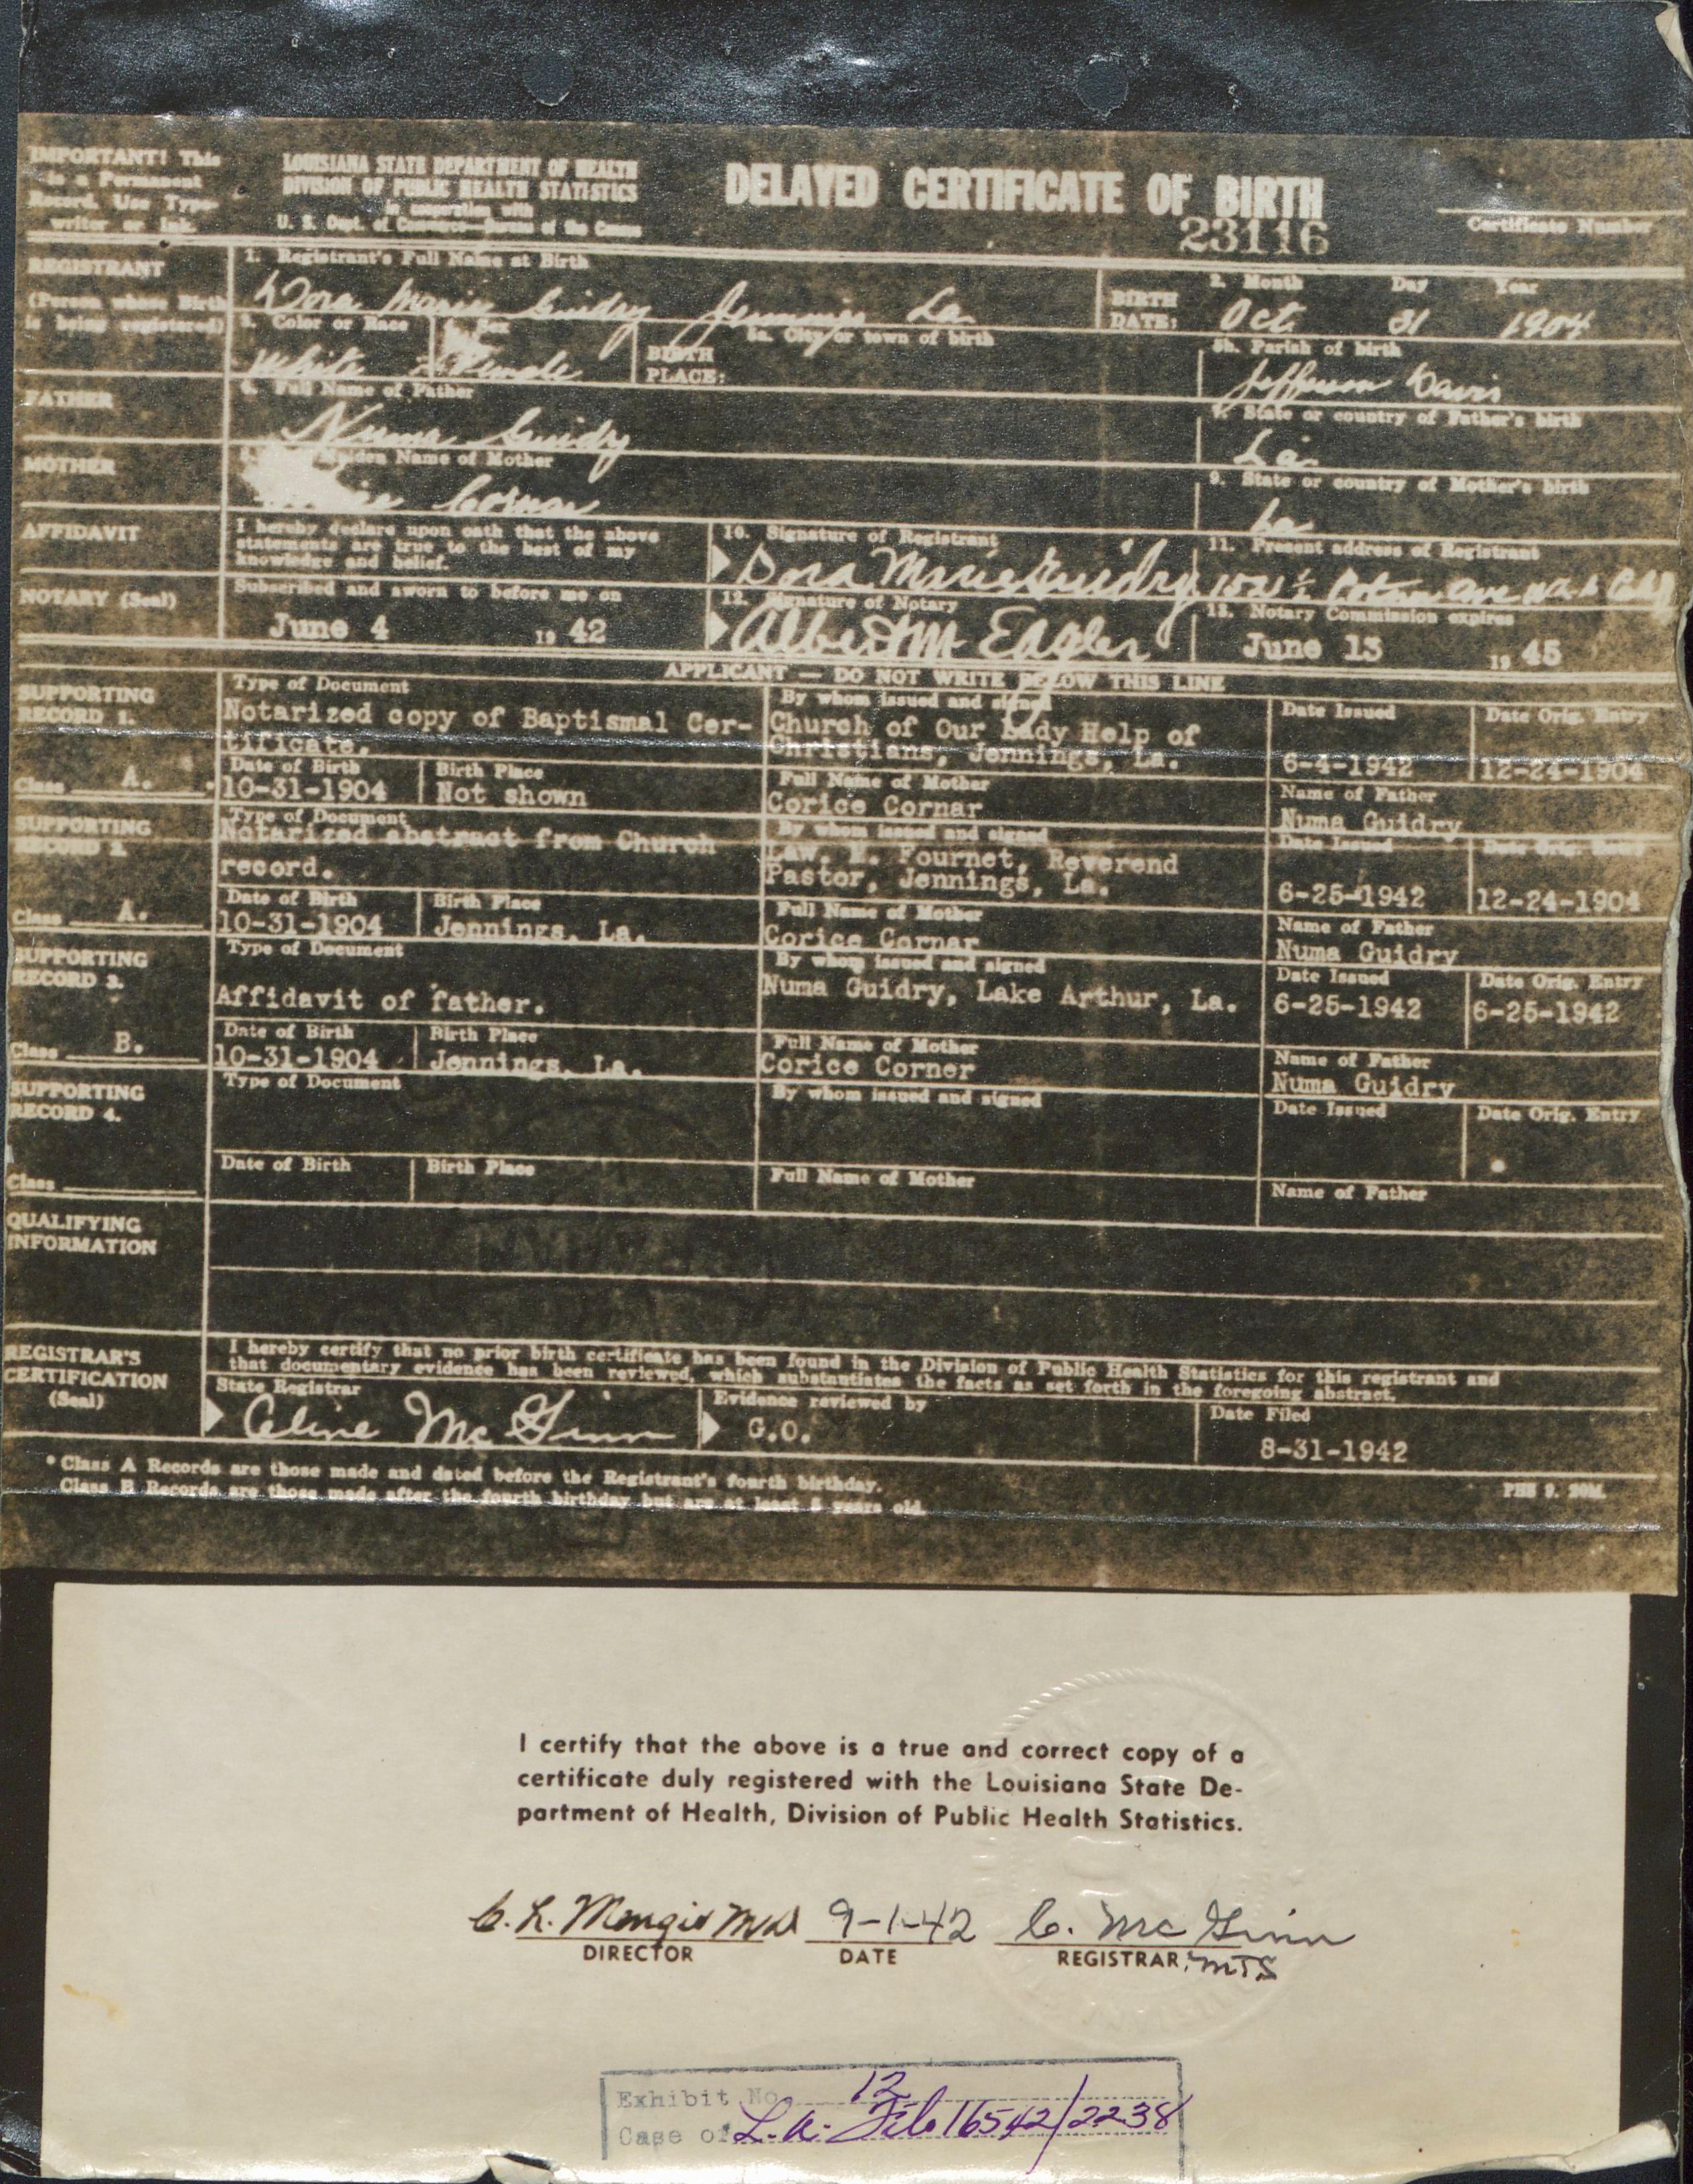 IMPORTANT! This
is a Permanent
Record. Use Type-
writer or Ink.
LOUISIANA STATE DEPARTMENT OF HEALTH
DIVISION OF PUBLIC HEALTH STATISTICS
In cooperation with
U. S. Dept. of Commerce—Bureau of the Census
DELAYED CERTIFICATE OF BIRTH
23116
Certificate Number
REGISTRANT
(Person whose Birth
is being registered)
1. Registrant's Full Name at Birth
Dora Marie Guidry Jennings La
BIRTH
DATE:
2. Month Day Year
Oct. 31 1904
3. Color or Race
White
4. Sex
Female
BIRTH
PLACE:
5a. City or town of birth
5b. Parish of birth
Jefferson Davis
FATHER
6. Full Name of Father
Numa Guidry
7. State or country of Father's birth
La.
MOTHER
Maiden Name of Mother
Cornar
9. State or country of Mother's birth
La
AFFIDAVIT
I hereby declare upon oath that the above
statements are true to the best of my
knowledge and belief.
10. Signature of Registrant
Dora Marie Guidry
11. Present address of Registrant
1521½ Ave
NOTARY (Seal)
Subscribed and sworn to before me on
June 4 19 42
12. Signature of Notary
Albert M Eagler
13. Notary Commission expires
June 13 19 45
APPLICANT — DO NOT WRITE BELOW THIS LINE
SUPPORTING
RECORD 1.
Class A.
Type of Document
Notarized copy of Baptismal Cer-
tificate.
By whom issued and signed
Church of Our Lady Help of
Christians, Jennings, La.
Date Issued
6-4-1942
Date Orig. Entry
12-24-1904
Date of Birth
10-31-1904
Birth Place
Not shown
Full Name of Mother
Corice Cornar
Name of Father
Numa Guidry
SUPPORTING
RECORD 2.
Class A.
Type of Document
Notarized abstract from Church
record.
By whom issued and signed
Law. E. Fournet, Reverend
Pastor, Jennings, La.
Date Issued
6-25-1942
Date Orig. Entry
12-24-1904
Date of Birth
10-31-1904
Birth Place
Jennings, La.
Full Name of Mother
Corice Cornar
Name of Father
Numa Guidry
SUPPORTING
RECORD 3.
Class B.
Type of Document
Affidavit of father.
By whom issued and signed
Numa Guidry, Lake Arthur, La.
Date Issued
6-25-1942
Date Orig. Entry
6-25-1942
Date of Birth
10-31-1904
Birth Place
Jennings, La.
Full Name of Mother
Corice Corner
Name of Father
Numa Guidry
SUPPORTING
RECORD 4.
Class
Type of Document
By whom issued and signed
Date Issued
Date Orig. Entry
Date of Birth
Birth Place
Full Name of Mother
Name of Father
QUALIFYING
INFORMATION
REGISTRAR'S
CERTIFICATION
(Seal)
I hereby certify that no prior birth certificate has been found in the Division of Public Health Statistics for this registrant and
that documentary evidence has been reviewed, which substantiates the facts as set forth in the foregoing abstract.
State Registrar
Celine Mc Ginn
Evidence reviewed by
G.O.
Date Filed
8-31-1942
* Class A Records are those made and dated before the Registrant's fourth birthday.
Class B Records are those made after the fourth birthday but are at least 5 years old.
PHS 9. 20M.
I certify that the above is a true and correct copy of a
certificate duly registered with the Louisiana State De-
partment of Health, Division of Public Health Statistics.
9-1-42 C. Mc Ginn
DIRECTOR DATE REGISTRAR MTS
Exhibit No. 12
Case of L.A. File 16542/2238